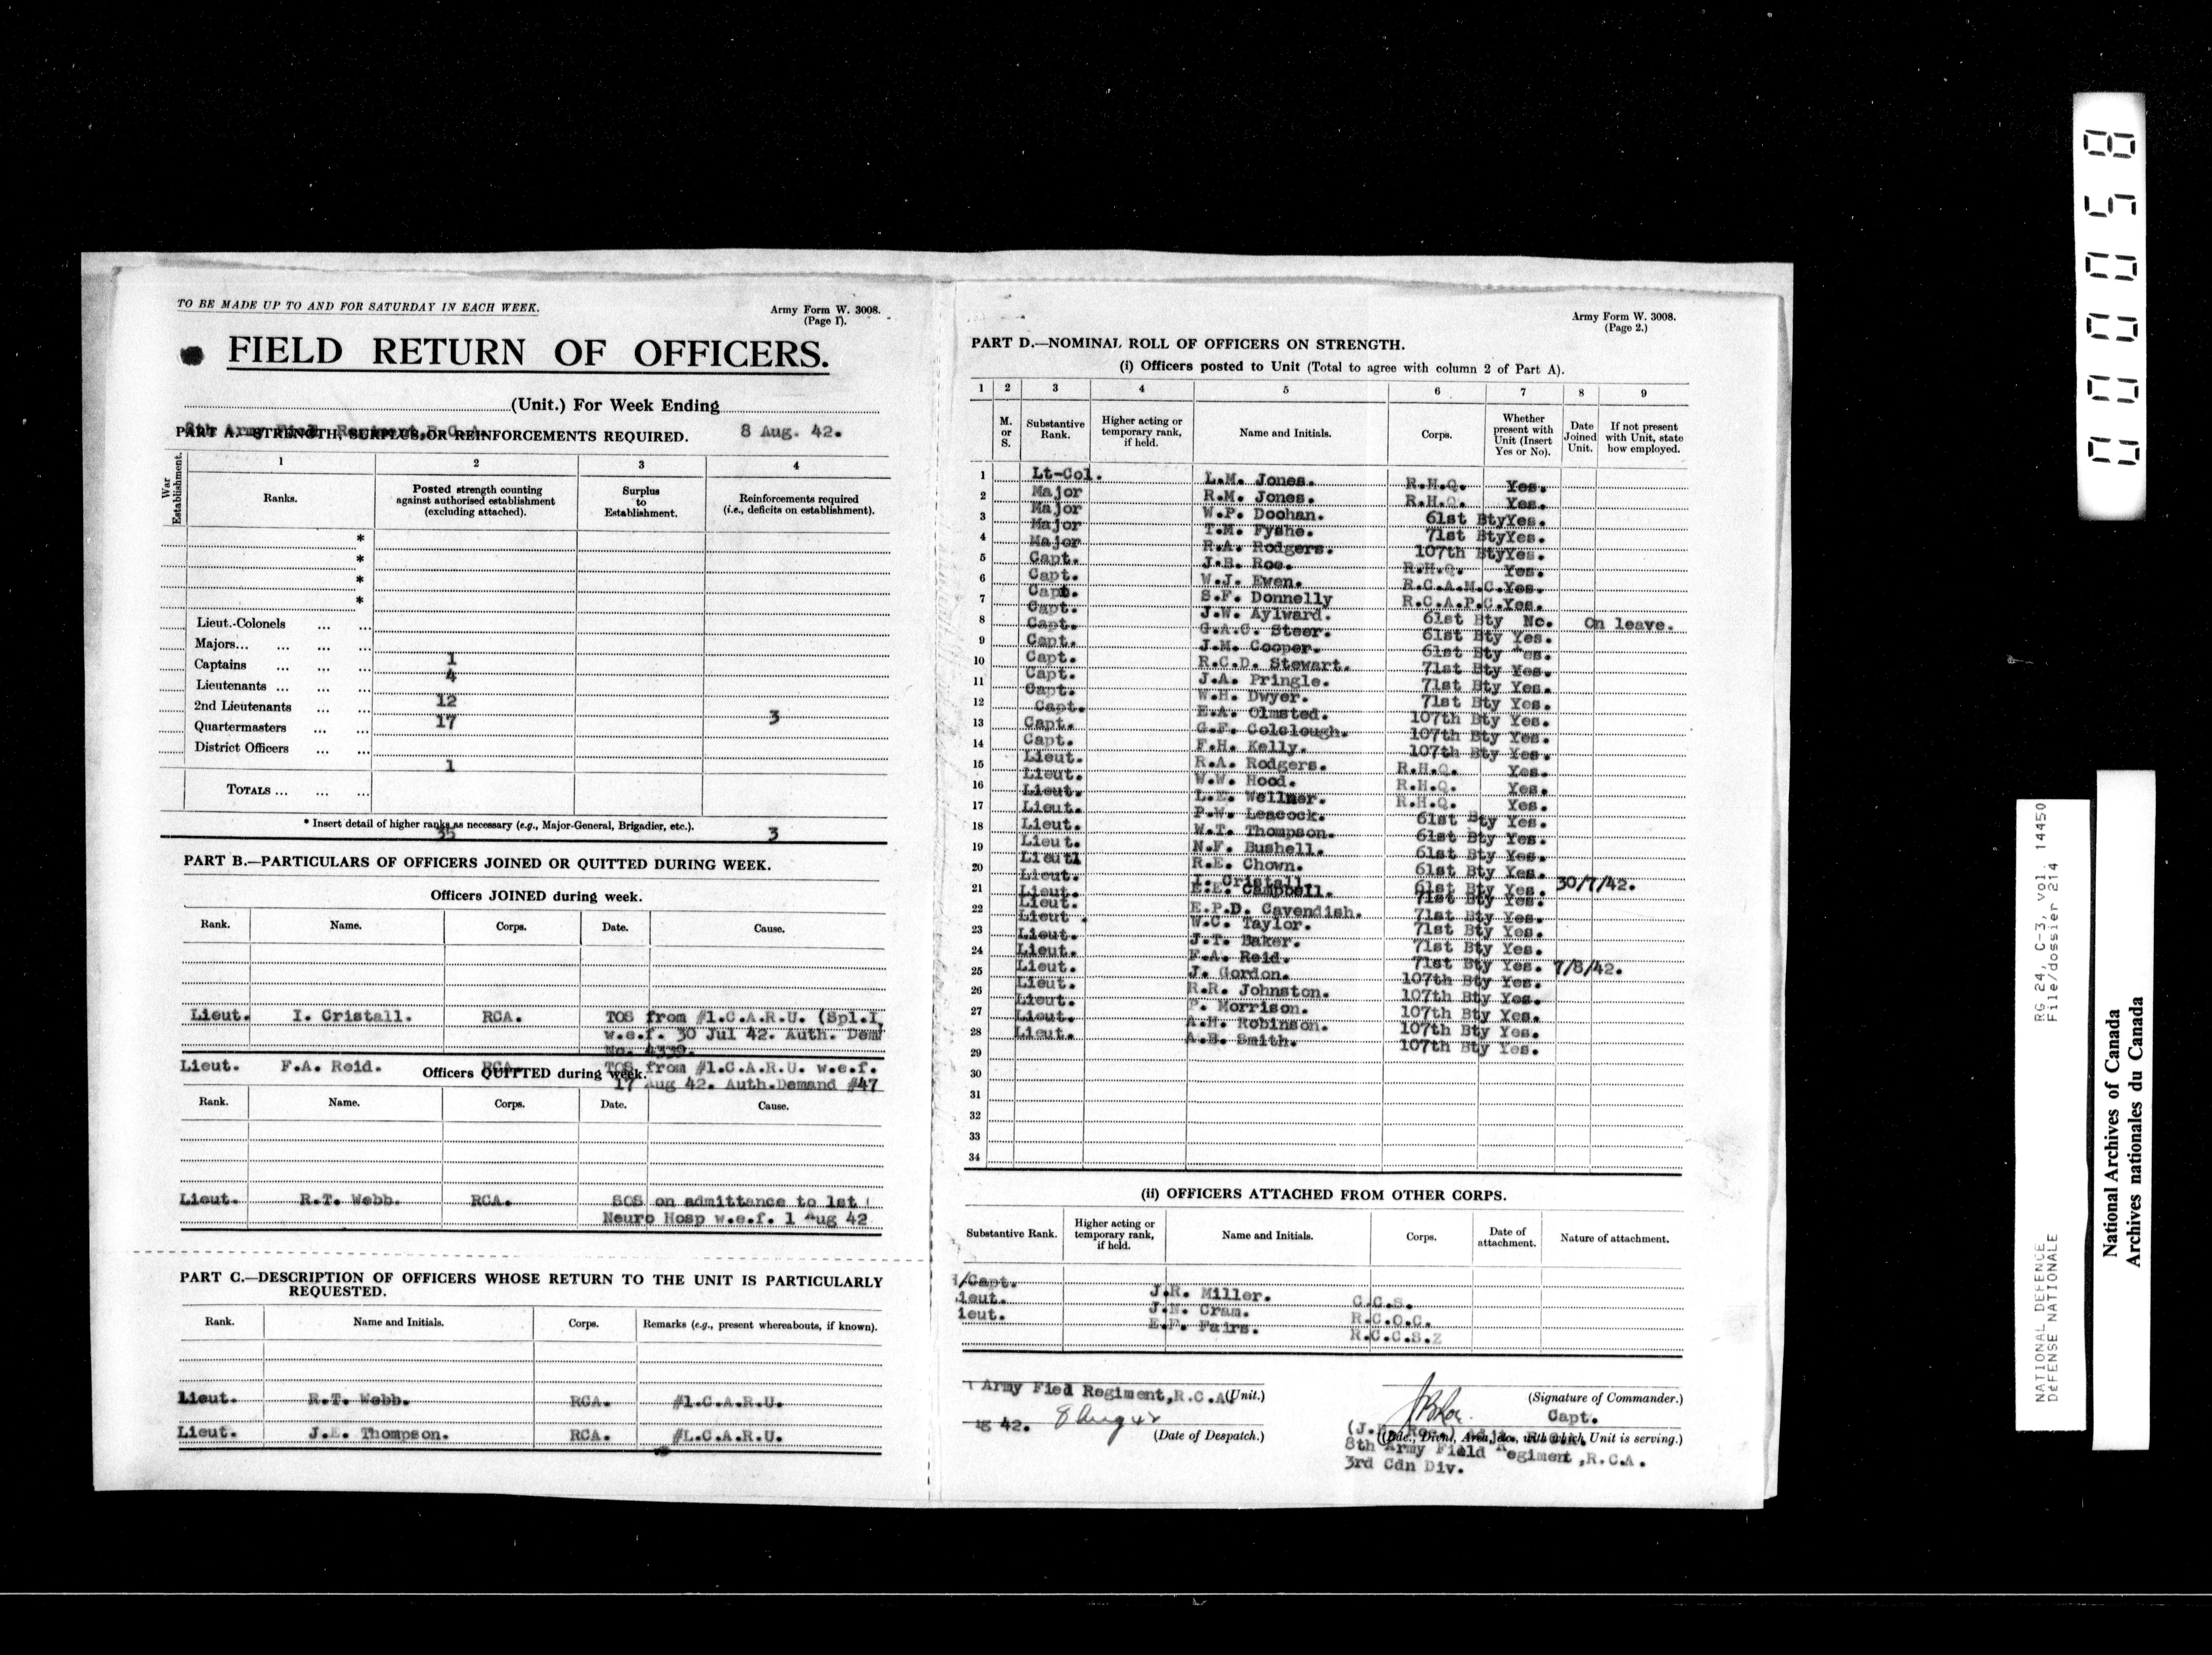 TO BE MADE UP TO AND FOR SATURDAY IN EACH WEEK.
Army Form W. 3008.
(Page 1).
FIELD RETURN OF OFFICERS.
(Unit.) For Week Ending
8th Army Field Regiment, R.C.A.
8 Aug. 42.
PART A.—STRENGTH, SURPLUS, OR REINFORCEMENTS REQUIRED.
War Establishment.
1 2 3 4
Ranks. Posted strength counting against authorised establishment (excluding attached). Surplus to Establishment. Reinforcements required (i.e., deficits on establishment).
*
*
*
*
Lieut.-Colonels ... ...
Majors... ... ... ...
1
Captains ... ... ...
4
Lieutenants ... ... ...
12
2nd Lieutenants ... ...
17 3
Quartermasters ... ...
District Officers ... ...
1
TOTALS ... ... ...
* Insert detail of higher ranks as necessary (e.g., Major-General, Brigadier, etc.).
35 3
PART B.—PARTICULARS OF OFFICERS JOINED OR QUITTED DURING WEEK.
Officers JOINED during week.
Rank. Name. Corps. Date. Cause.
Lieut. I. Cristall. RCA. TOS from #1.C.A.R.U. (Spl.I,
w.e.f. 30 Jul 42. Auth. Dem
No. 4339.
Lieut. F.A. Reid. RCA. TOS from #1.C.A.R.U. w.e.f.
Officers QUITTED during week.
17 Aug 42. Auth.Demand #47
Rank. Name. Corps. Date. Cause.
Lieut. R.T. Webb. RCA. SOS on admittance to 1st
Neuro Hosp w.e.f. 1 Aug 42
PART C.—DESCRIPTION OF OFFICERS WHOSE RETURN TO THE UNIT IS PARTICULARLY
REQUESTED.
Rank. Name and Initials. Corps. Remarks (e.g., present whereabouts, if known).
Lieut. R.T. Webb. RCA. #1.C.A.R.U.
Lieut. J.E. Thompson. RCA. #L.C.A.R.U.
Army Form W. 3008.
(Page 2.)
PART D.—NOMINAL ROLL OF OFFICERS ON STRENGTH.
(i) Officers posted to Unit (Total to agree with column 2 of Part A).
1 2 3 4 5 6 7 8 9
M. or S. Substantive Rank. Higher acting or temporary rank, if held. Name and Initials. Corps. Whether present with Unit (Insert Yes or No). Date Joined Unit. If not present with Unit, state how employed.
1 Lt-Col. L.M. Jones. R.H.Q. Yes.
2 Major R.M. Jones. R.H.Q. Yes.
3 Major W.P. Doohan. 61st Bty Yes.
4 Major T.M. Fyshe. 71st Bty Yes.
Major R.A. Rodgers. 107th Bty Yes.
5 Capt. J.B. Roe. R.H.Q. Yes.
6 Capt. W.J. Ewen. R.C.A.M.C. Yes.
7 Capt. S.F. Donnelly R.C.A.P.C. Yes.
Capt. J.W. Aylward. 61st Bty No. On leave.
8 Capt. G.A.C. Steer. 61st Bty Yes.
9 Capt. J.M. Cooper. 61st Bty Yes.
10 Capt. R.C.D. Stewart. 71st Bty Yes.
11 Capt. J.A. Pringle. 71st Bty Yes.
Capt. W.H. Dwyer. 71st Bty Yes.
12 Capt. E.A. Olmsted. 107th Bty Yes.
13 Capt. G.F. Colclough. 107th Bty Yes.
14 Capt. F.H. Kelly. 107th Bty Yes.
15 Lieut. R.A. Rodgers. R.H.Q. Yes.
Lieut. W.W. Hood. R.H.Q. Yes.
16 Lieut. L.E. Wellner. R.H.Q. Yes.
17 Lieut. P.W. Leacock. 61st Bty Yes.
18 Lieut. W.T. Thompson. 61st Bty Yes.
19 Lieut. N.F. Bushell. 61st Bty Yes.
Lieutl R.E. Chown. 61st Bty Yes.
20 Lieut. I. Cristall. 61st Bty Yes. 30/7/42.
21 Lieut. E.E. Campbell. 71st Bty Yes.
22 Lieut. E.P.D. Cavendish. 71st Bty Yes.
Lieut. W.C. Taylor. 71st Bty Yes.
23 Lieut. J.T. Baker. 71st Bty Yes.
24 Lieut. F.A. Reid. 71st Bty Yes. 7/8/42.
25 Lieut. J. Gordon. 107th Bty Yes.
26 Lieut. R.R. Johnston. 107th Bty Yes.
Lieut. P. Morrison. 107th Bty Yes.
27 Lieut. A.H. Robinson. 107th Bty Yes.
28 Lieut. A.E. Smith. 107th Bty Yes.
29
30
31
32
33
34
(ii) OFFICERS ATTACHED FROM OTHER CORPS.
Substantive Rank. Higher acting or temporary rank, if held. Name and Initials. Corps. Date of attachment. Nature of attachment.
H/Capt. J.R. Miller. C.C.S.
ieut. J.N. Cram. R.C.O.C.
ieut. E.F. Fairs. R.C.C.S.Z
Army Fied Regiment,R.C.A (Unit.)
(Signature of Commander.)
ug 42. 8 Aug 42
(Date of Despatch.)
Capt.
(Bde., Divnl, Area, etc., with which Unit is serving.)
8th Army Field Regiment ,R.C.A.
3rd Cdn Div.
000058
RG 24, C-3, vol. 14450
File/dossier 214
NATIONAL DEFENCE
DÉFENSE NATIONALE
National Archives of Canada
Archives nationales du Canada